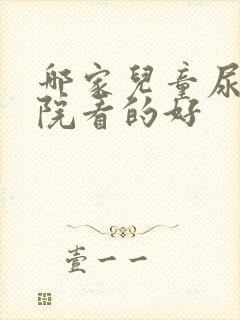 哪家兒童尿
院看的好
壹一一